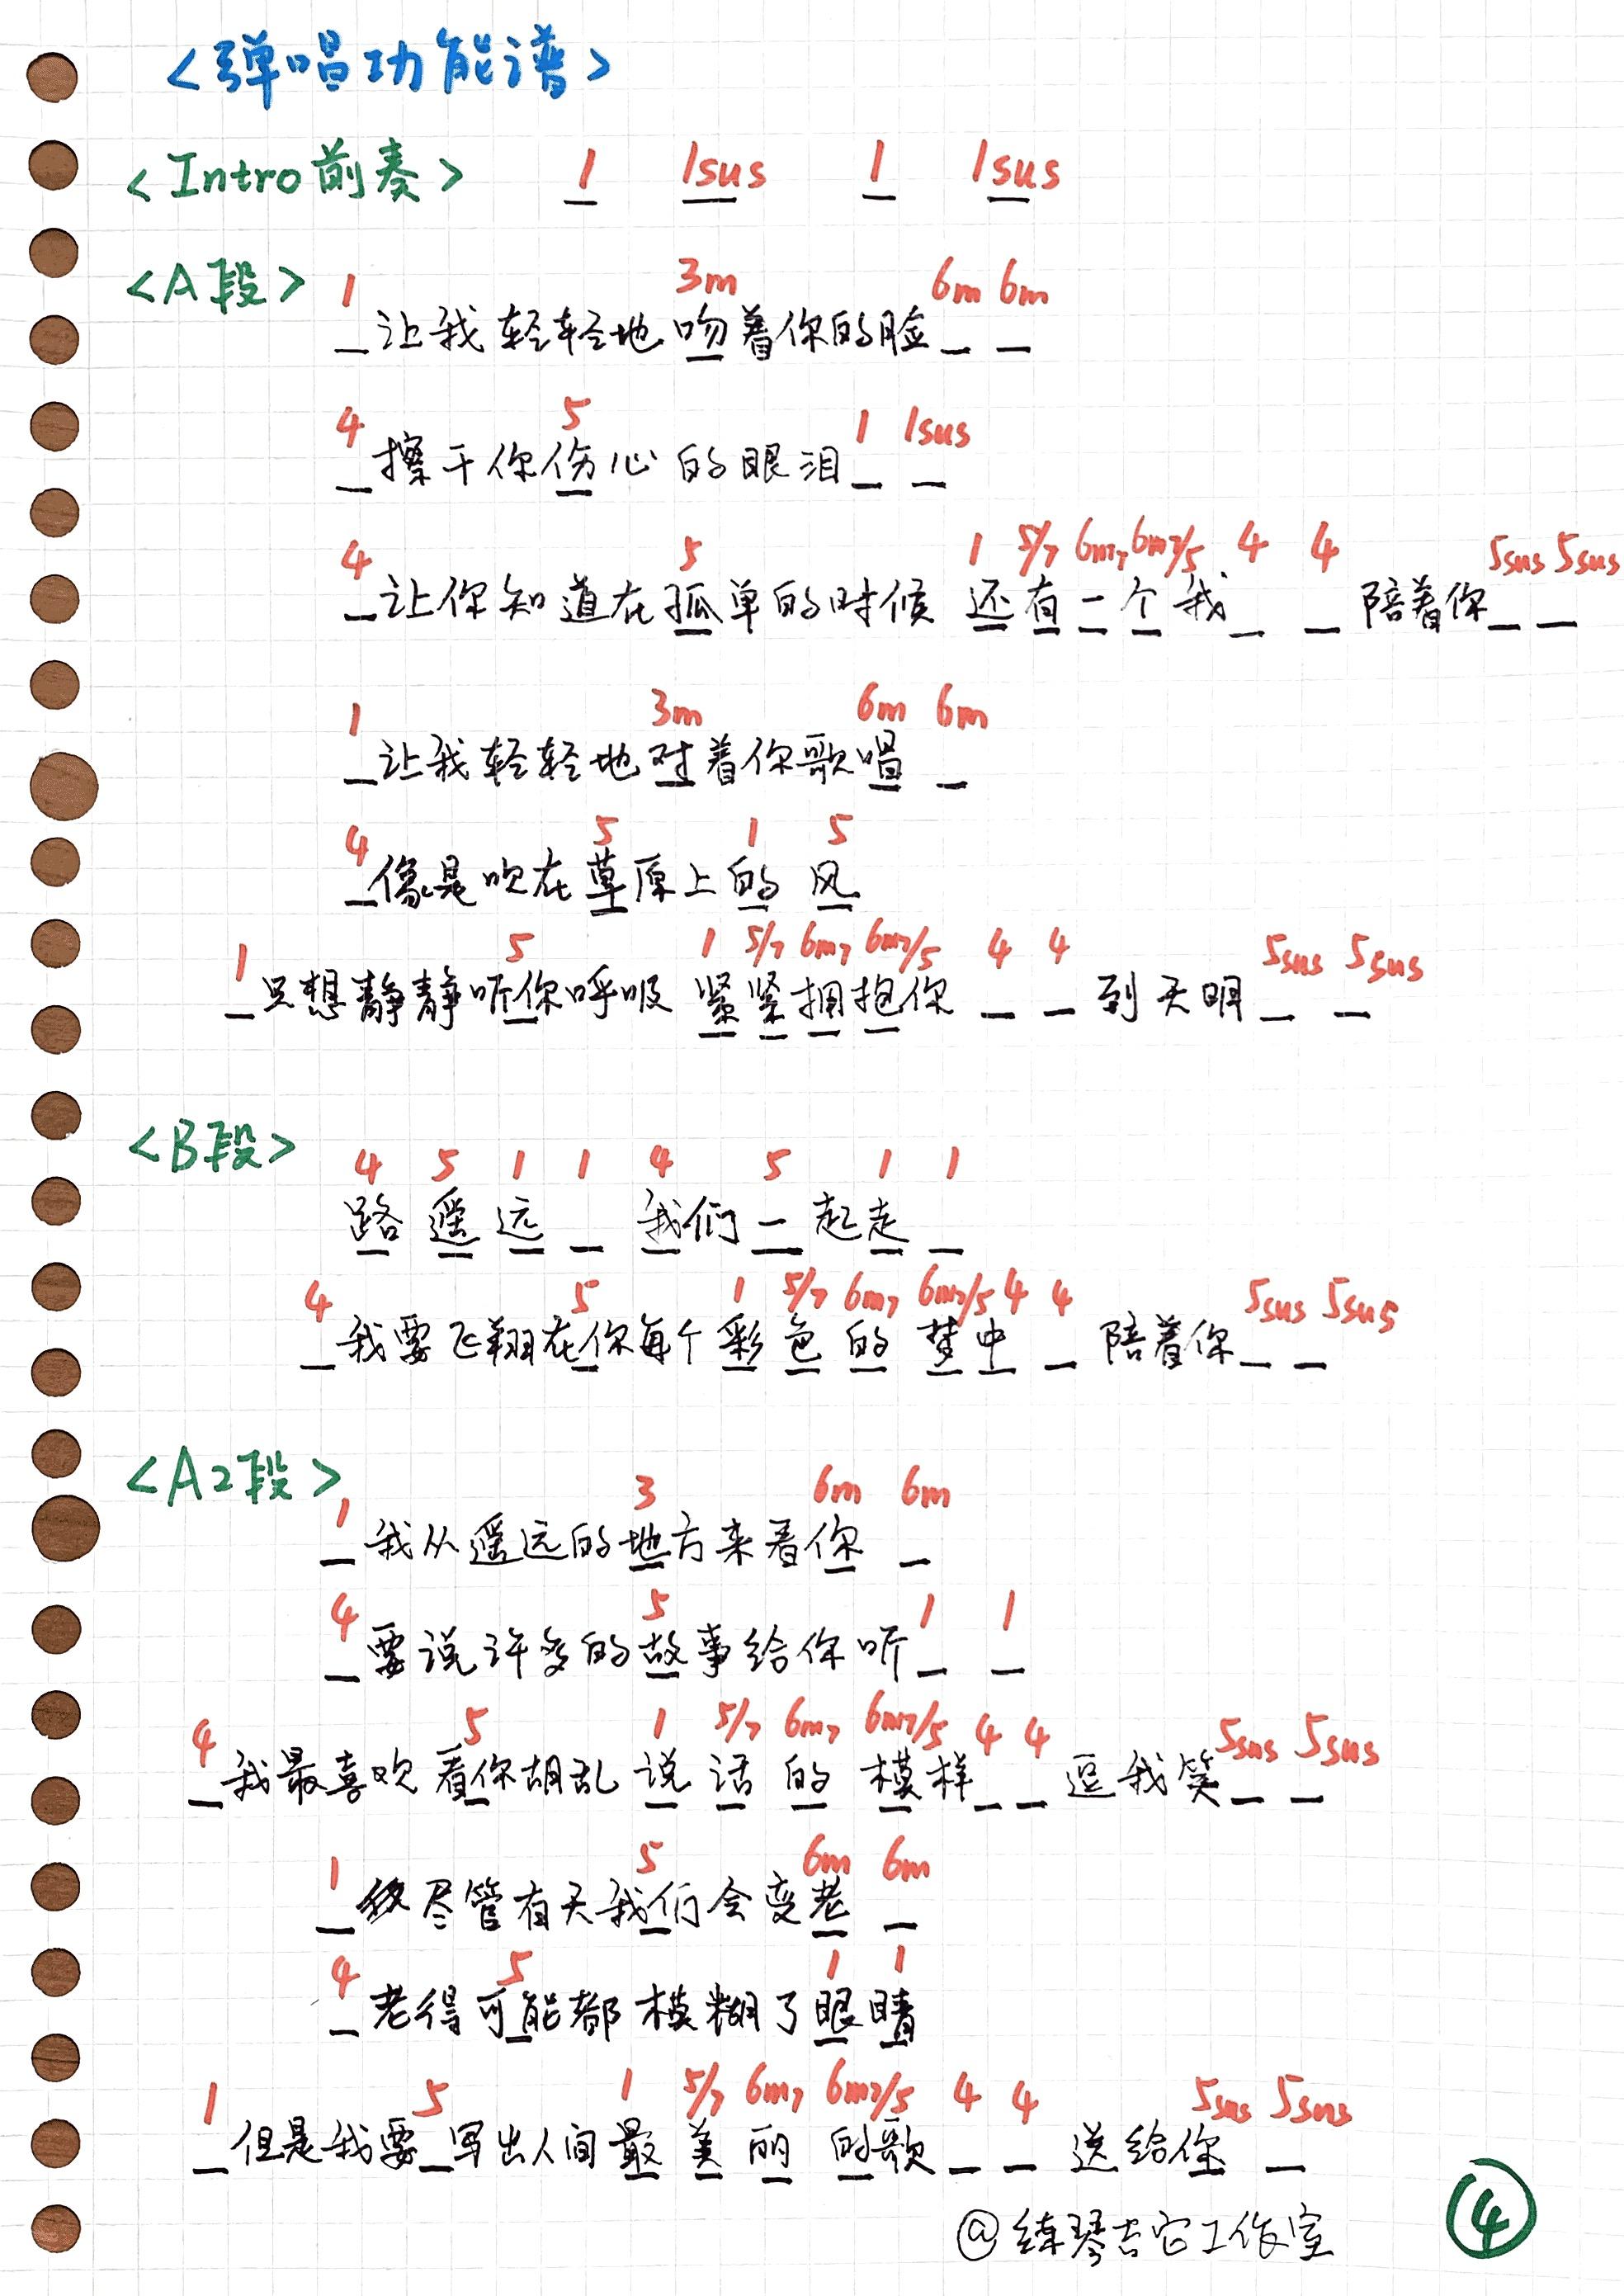 <弹唱功能谱>
<Intro前奏> 1 1sus 1 1sus
<A段> 1 3m 6m 6m
_让我轻轻地吻着你的脸_ _
4 5 1 1sus
_擦干你伤心的眼泪_ _
4 5 1 5/7 6m7 6m7/5 4 4 5sus 5sus
_让你知道在孤单的时候 还有一个我_ _ 陪着你_ _
1 3m 6m 6m
_让我轻轻地对着你歌唱 _
4 5 1 5
_像是吹在草原上的风
1 5 1 5/7 6m7 6m7/5 4 4 5sus 5sus
_只想静静听你呼吸 紧紧拥抱你 _ _ 到天明_ _
<B段>
4 5 1 1 4 5 1 1
路遥远 _ 我们一起走 _
4 5 1 5/7 6m7 6m7/5 4 4 5sus 5sus
_我要飞翔在你每个彩色的梦中 _ 陪着你_ _
<A2段>
1 3 6m 6m
_我从遥远的地方来看你 _
4 5 1 1
_要说许多的故事给你听_ _
4 5 1 5/7 6m7 6m7/5 4 4 5sus 5sus
_我最喜欢看你胡乱说话的模样_ _ 逗我笑_ _
1 5 6m 6m
_尽管有天我们会变老 _
4 5 1 1
_老得可能都模糊了眼睛
1 5 1 5/7 6m7 6m7/5 4 4 5sus 5sus
_但是我要_写出人间最美丽的歌_ _ 送给你 _
@练琴吉它工作室
4